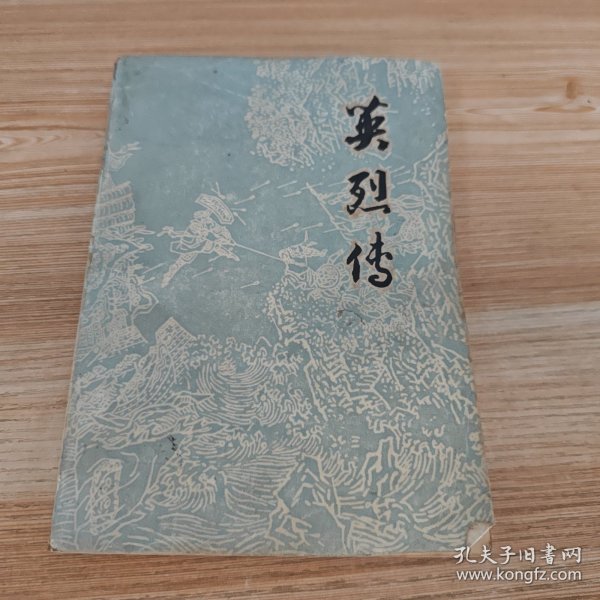 英烈传
孔夫子旧書网
www.kongfz.com